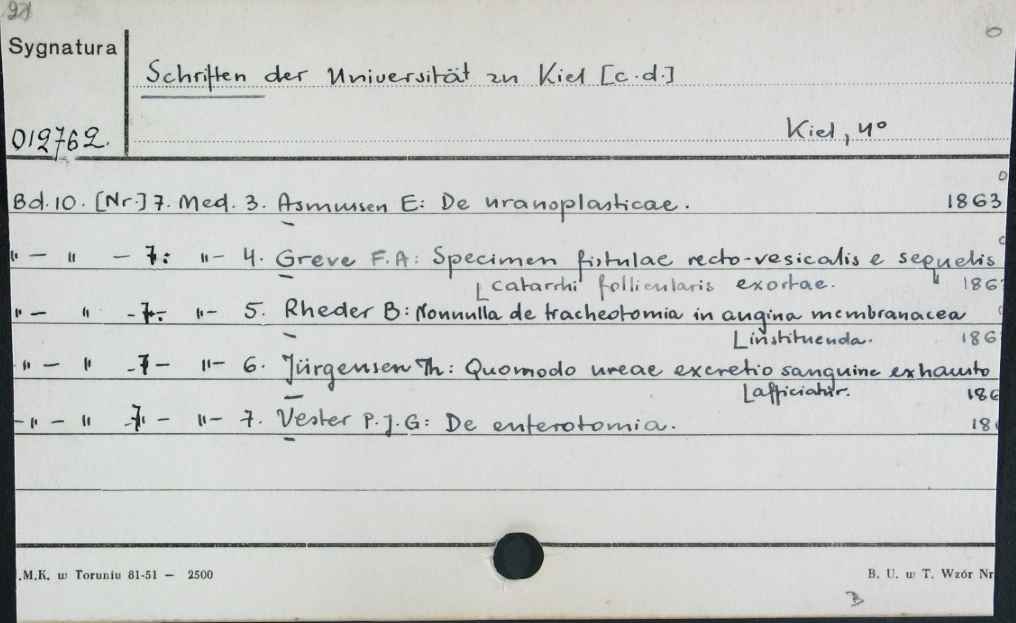 Sygnatura
Schriften der Universität zu Kiel [c.d.]
012762.
Kiel, 4°
Bd. 10. [Nr.] 7. Med. 3. Asmussen E: De uranoplasticae. 1863
" — " — 7: "— 4. Greve F.A: Specimen fistulae recto-vesicalis e sequelis
catarrhi follicularis exortae. 186
" — " -7-: "— 5. Rheder B: Nonnulla de tracheotomia in angina membranacea
instituenda. 186
" — " -7- "— 6. Jürgensen Th: Quomodo ureae excretio sanguine exhausto
afficiatur. 186
- " — " -7- "— 7. Vester P.J.G: De enterotomia. 18
.M.K. w Toruniu 81-51 — 2500
B. U. w T. Wzór Nr